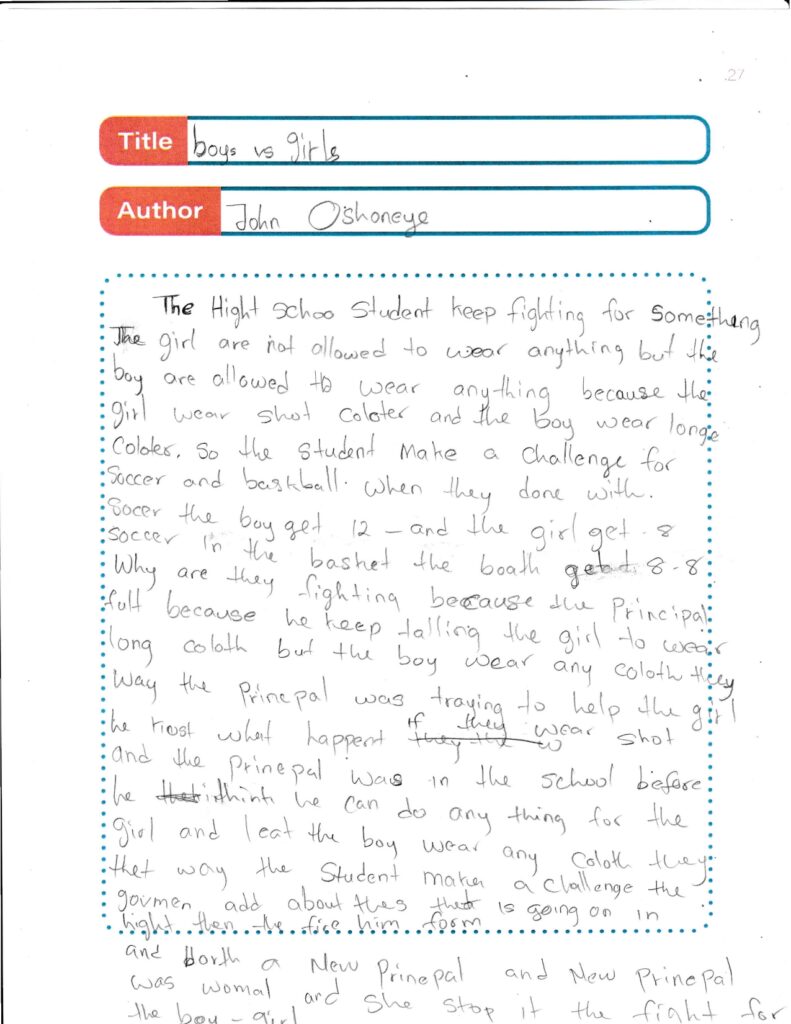 27
Title boys vs girls
Author John Oshoneye
The Hight schoo student keep fighting for something
The girl are not allowed to wear anything but the
boy are allowed to wear anything because the
girl wear shot coloter and the boy wear longe
Coloter. So the student make a challenge for
Soccer and baskball. When they done with.
Socer the boy get 12 - and the girl get 8
soccer in the basket the boath 8-8
Why are they fighting because the Principal
fult because he keep talling the girl to wear
long coloth but the boy wear any coloth they
Way the Prinepal was traying to help the girl
he what happent if they wear shot
and the Prinepal was in the school before
he he can do any thing for the
girl and leat the boy wear any coloth they
thet way the student maker a clallenge the
govmen add about thes is going on in
hight then the fire him form
and a New Prinepal and New Prinepal
was womal and she stop it the fight for
the boy - girl